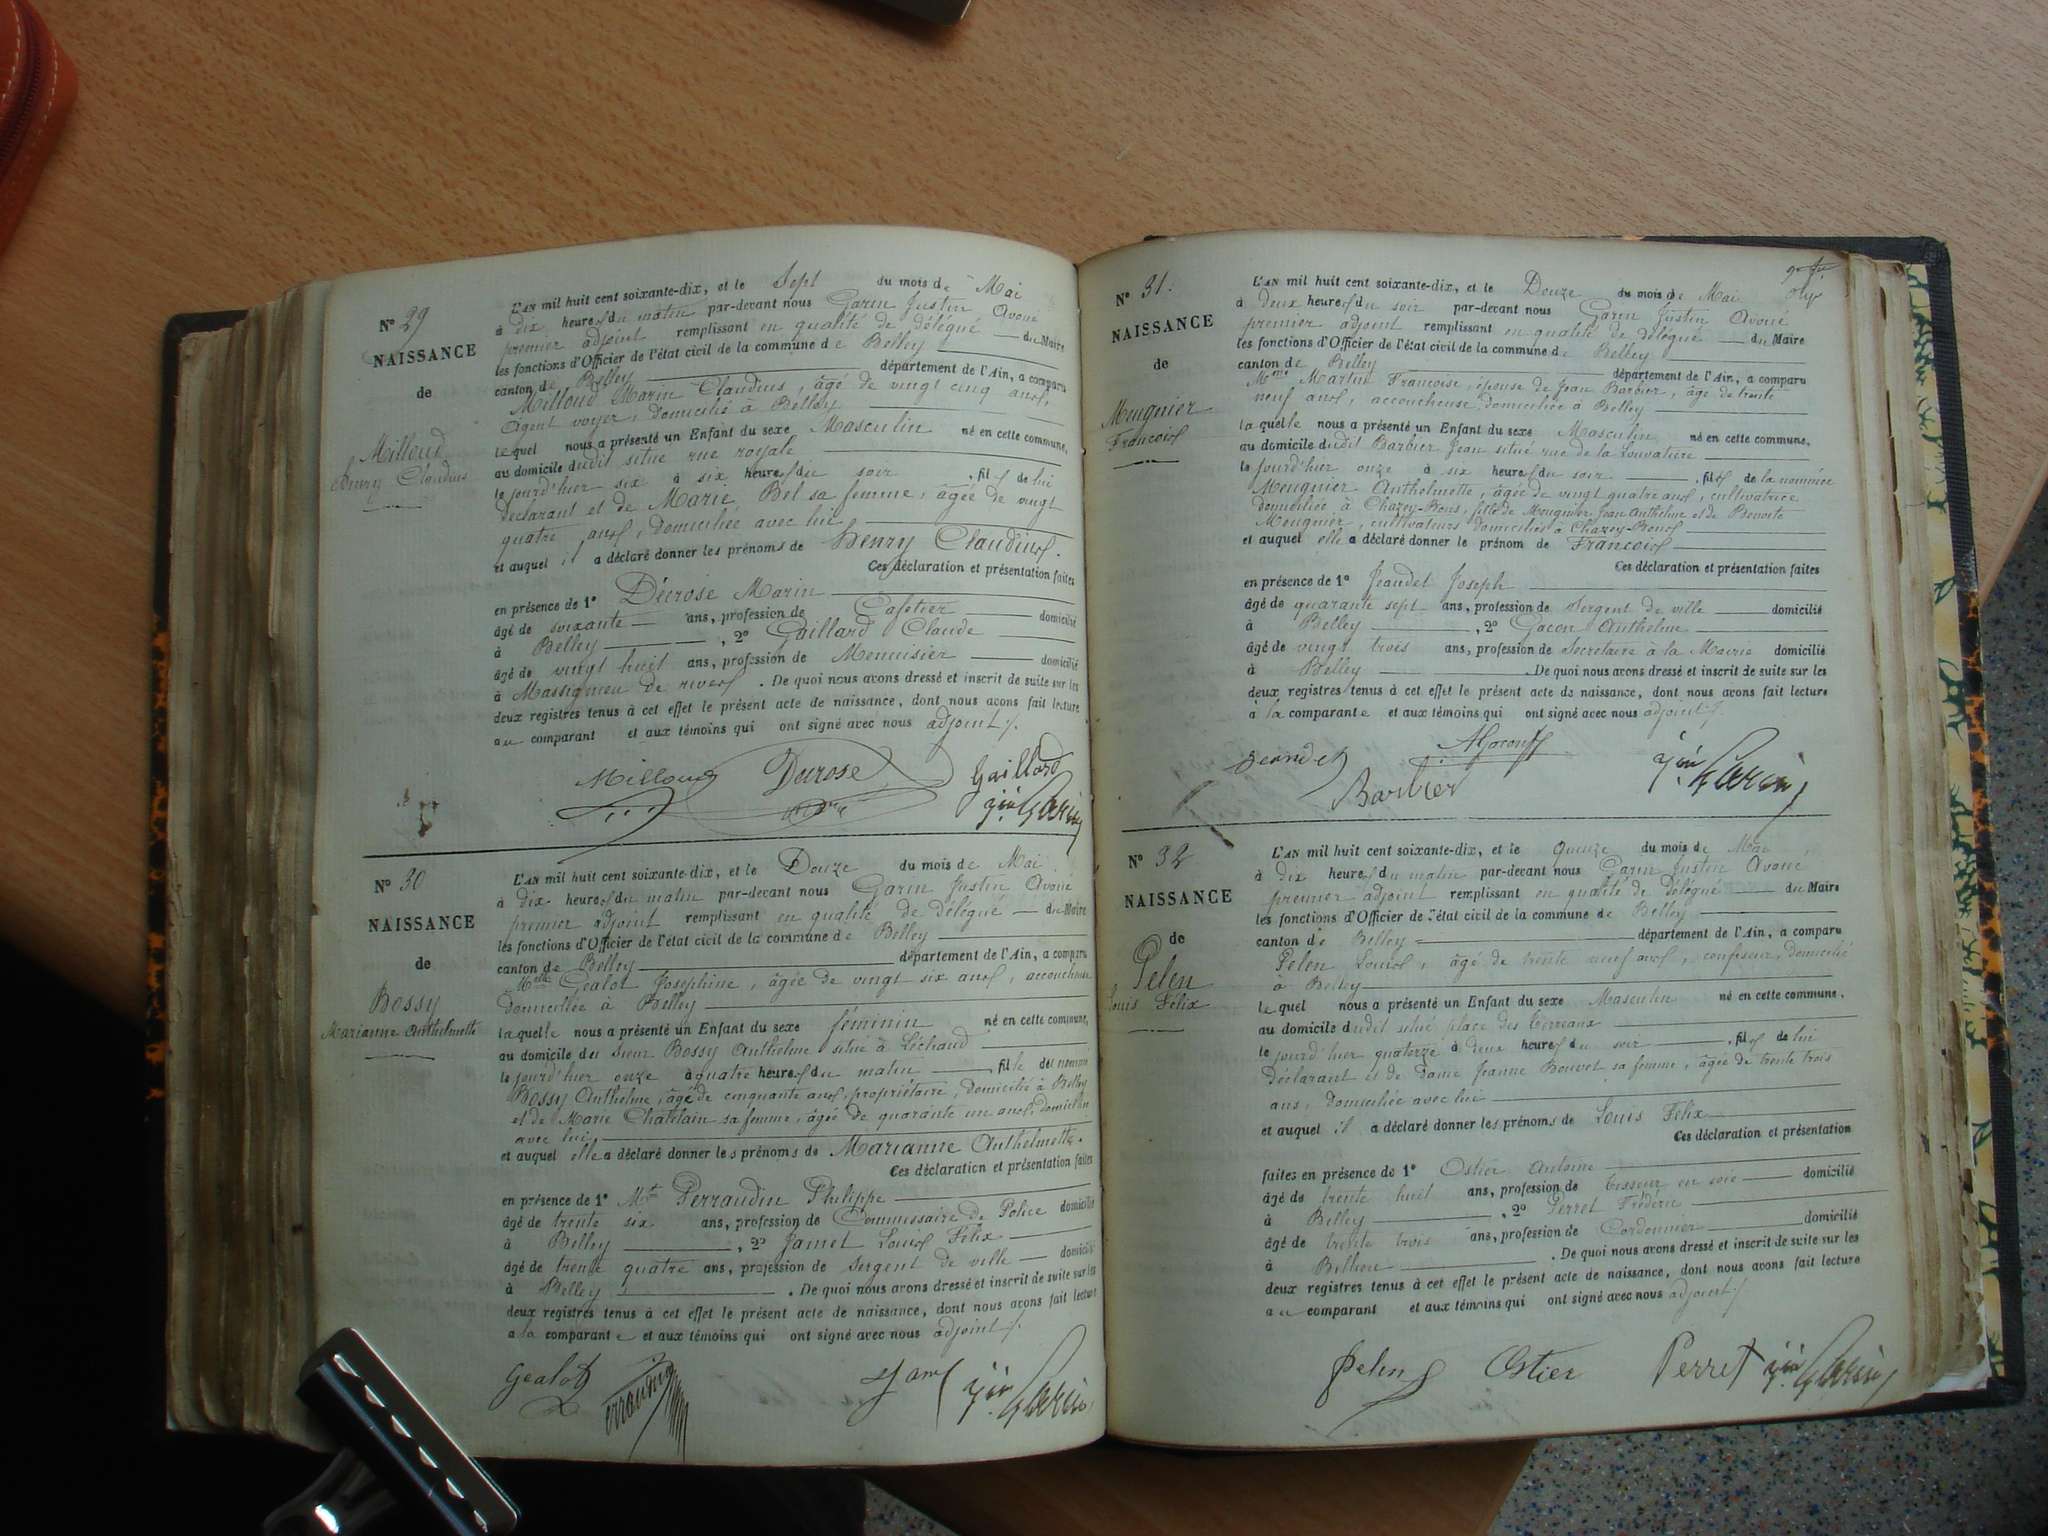 N° 29
NAISSANCE
de
Milloud
henry Claudius
L'AN mil huit cent soixante-dix, et le Sept du mois de Mai
à dix heures du matin par-devant nous Garin Justin Avoué
premier adjoint remplissant en qualité de délégué du Maire
les fonctions d'Officier de l'état civil de la commune de Belley
canton de Belley département de l'Ain, a comparu
Milloud Marin Claudius, âgé de vingt cinq ans,
agent voyer, domicilié à Belley
lequel nous a présenté un Enfant du sexe Masculin né en cette commune,
au domicile dudit situé rue royale
le jourd'hier six à six heures du soir, fils de lui
déclarant et de Marie Bel sa femme, âgée de vingt
quatre ans, domiciliée avec lui
et auquel il a déclaré donner les prénoms de henry Claudius.
Ces déclaration et présentation faites
en présence de 1° Décrose Marin
âgé de soixante ans, profession de Cafetier domicilié
à Belley, 2° Gaillard Claude
âgé de vingt huit ans, profession de Menuisier domicilié
à Massigneu de rives. De quoi nous avons dressé et inscrit de suite sur les
deux registres tenus à cet effet le présent acte de naissance, dont nous avons fait lecture
au comparant et aux témoins qui ont signé avec nous adjoint /.
Milloud Decrose Gaillard
jin Garin
N° 30
NAISSANCE
de
Bossy
Marianne Anthelmette
L'AN mil huit cent soixante-dix, et le Douze du mois de Mai
à dix heures du matin par-devant nous Garin Justin Avoué
premier adjoint remplissant en qualité de délégué du Maire
les fonctions d'Officier de l'état civil de la commune de Belley
canton de Belley département de l'Ain, a comparu
Melle Gealot Josephine, âgée de vingt six ans, accoucheuse
domiciliée à Belley
laquelle nous a présenté un Enfant du sexe féminin né en cette commune,
au domicile du sieur Bossy Anthelme situé à Léchaud
le jourd'hier onze à quatre heures du matin, fille de nommé
Bossy Anthelme, âgé de cinquante ans, propriétaire, domicilié à Belley
et de Marie Chatelain sa femme, âgée de quarante un ans, domiciliée
avec lui
et auquel elle a déclaré donner les prénoms de Marianne Anthelmette.
Ces déclaration et présentation faites
en présence de 1° Mr Perraudin Philippe
âgé de trente six ans, profession de Commissaire de Police domicilié
à Belley, 2° Jamet Louis Felix
âgé de trente quatre ans, profession de Sergent de ville domicilié
à Belley. De quoi nous avons dressé et inscrit de suite sur les
deux registres tenus à cet effet le présent acte de naissance, dont nous avons fait lecture
a la comparante et aux témoins qui ont signé avec nous adjoint /.
Gealot jin Garin
N° 31.
NAISSANCE
de
Meugnier
Francois
L'AN mil huit cent soixante-dix, et le Douze du mois de Mai
à deux heures du soir par-devant nous Garin Justin Avoué
premier adjoint remplissant en qualité de délégué du Maire
les fonctions d'Officier de l'état civil de la commune de Belley
canton de Belley département de l'Ain, a comparu
Mme Martin Francoise, épouse de Jean Barbier, âgé de trente
neuf ans, accoucheuse, domiciliée à Belley
laquelle nous a présenté un Enfant du sexe Masculin né en cette commune,
au domicile dudit Barbier Jean situé rue de la Louvatière
le jourd'hier onze à six heures du soir, fils de la nommée
Meugnier Anthelmette, âgée de vingt quatre ans, cultivatrice
domiciliée à Chazey-Bons, fille de Meugnier Jean Anthelme et de Benoite
Meugnier, cultivateurs domiciliés à Chazey-Bons
et auquel elle a déclaré donner le prénom de Francois
Ces déclaration et présentation faites
en présence de 1° Jeandet Joseph
âgé de quarante sept ans, profession de Sergent de ville domicilié
à Belley, 2° Gacon Anthelme
âgé de vingt trois ans, profession de Secretaire à la Mairie domicilié
à Belley. De quoi nous avons dressé et inscrit de suite sur les
deux registres tenus à cet effet le présent acte de naissance, dont nous avons fait lecture
à la comparante et aux témoins qui ont signé avec nous adjoint /.
Jeandet AGacon jin Garin
Barbier
N° 32
NAISSANCE
de
Pelen
Louis Félix
L'AN mil huit cent soixante-dix, et le Quinze du mois de Mai
à dix heures du matin par-devant nous Garin Justin Avoué
premier adjoint remplissant en qualité de délégué du Maire
les fonctions d'Officier de l'état civil de la commune de Belley
canton de Belley département de l'Ain, a comparu
Pelen Louis, âgé de trente neuf ans, confiseur, domicilié
à Belley
lequel nous a présenté un Enfant du sexe Masculin né en cette commune,
au domicile dudit situé place des Terreaux
le jourd'hier quatorze à deux heures du soir, fils de lui
Déclarant et de Dame Jeanne Bouvet sa femme, âgée de trente trois
ans, domiciliée avec lui
et auquel il a déclaré donner les prénoms de Louis Felix
Ces déclaration et présentation
faites en présence de 1° Ostier Antoine domicilié
âgé de trente huit ans, profession de tisseur en soie
à Belley, 2° Perret Frédéric
âgé de trente trois ans, profession de Cordonnier domicilié
à Belley. De quoi nous avons dressé et inscrit de suite sur les
deux registres tenus à cet effet le présent acte de naissance, dont nous avons fait lecture
au comparant et aux témoins qui ont signé avec nous adjoint /.
Pelen Ostier Perret jin Garin